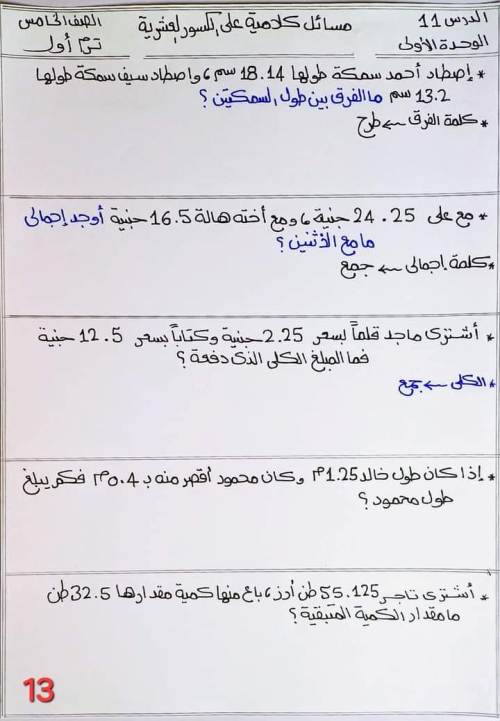 الدرس 11 مسائل كلامية على الكسور العشرية الصف الخامس
الوحدة الأولى ترم أول
* إصطاد أحمد سمكة طولها 18.14 سم، واصطاد سيف سمكة طولها
13.2 سم ما الفرق بين طول السمكتين؟
* كلمة الفرق ← طرح
* مع على 24.25 جنية، ومع أخته هالة 16.5 جنية أوجد إجمالى
ما مع الأثنين؟
* كلمة إجمالى ← جمع
* أشترى ماجد قلماً بسعر 2.25 جنية وكتاباً بسعر 12.5 جنية
فما المبلغ الكلى الذى دفعة؟
* الكلى ← جمع
* إذا كان طول خالد 1.25م وكان محمود أقصر منه بـ 0.4م فكم يبلغ
طول محمود؟
* أشترى تاجر 55.125 طن أرز، باع منها كمية مقدارها 32.5 طن
ما مقدار الكمية المتبقية؟
13